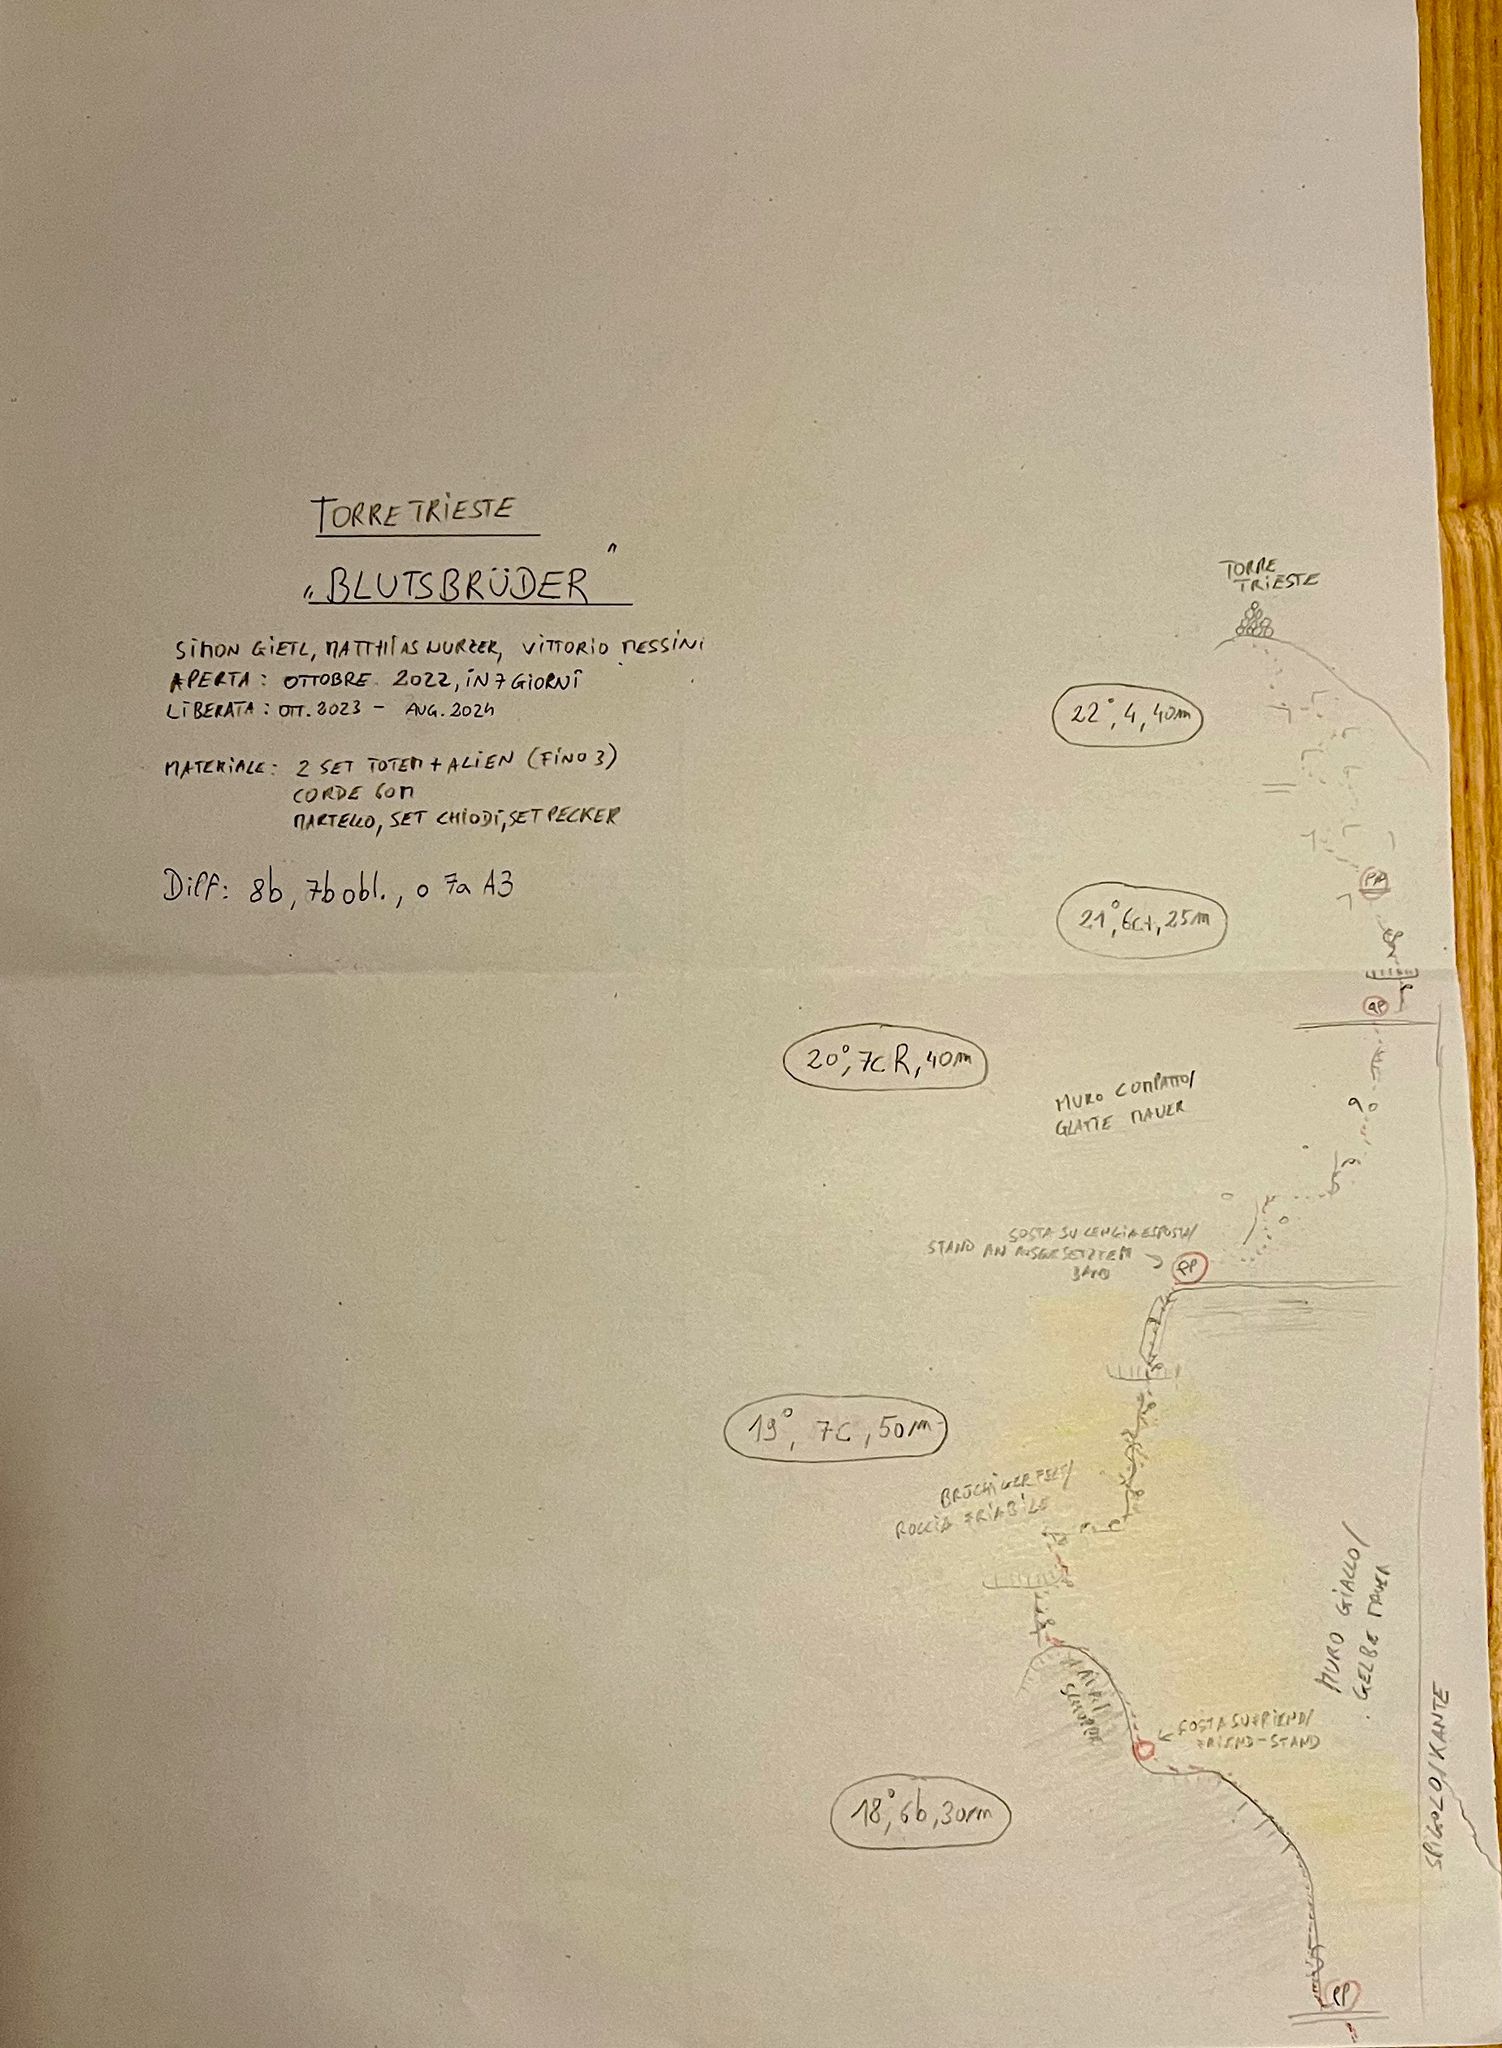 TORRE TRIESTE
„BLUTSBRÜDER"
SIMON GIETL, MATTHIAS WURZER, VITTORIO MESSINI
APERTA: OTTOBRE 2022, IN 7 GIORNI
LIBERATA: OTT. 2023 - AUG. 2024
MATERIALE: 2 SET TOTEM + ALIEN (FINO 3)
CORDE 60M
MARTELLO, SET CHIODI, SET PECKER
Diff: 8b, 7b obl., o 7a A3
TORRE
TRIESTE
22°, 4, 40m
21°, 6c+, 25m
20°, 7c R, 40m
MURO COMPATTO/
GLATTE MAUER
SOSTA SU CENGIA ESPOSTA/
STAND AN AUSGESETZTEM
BAND
PP
19°, 7c, 50m
BRÜCHIGER FELS/
ROCCIA FRIABILE
MURO GIALLO/
GELBE MAUER
SOSTA SU FRIEND/
FRIEND-STAND
SPIGOLO/KANTE
18°, 6b, 30m
PP